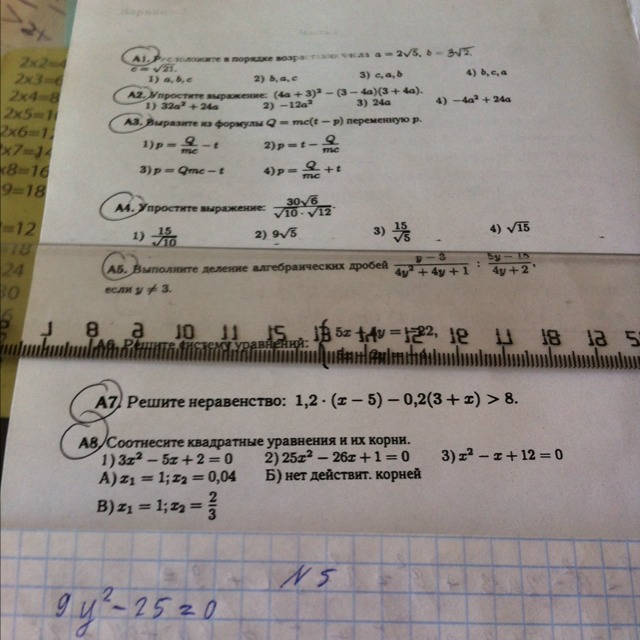 Часть 1
2x2=4
2x3=6
2x4=8
2x5=10
2x6=12
2x7=14
x8=16
9=18
=12
24
30
А1. Расположите в порядке возрастания числа a = 2√5, b = 3√2,
c = √21.
1) a, b, c 2) b, a, c 3) c, a, b 4) b, c, a
А2. Упростите выражение: (4a + 3)² − (3 − 4a)(3 + 4a).
1) 32a² + 24a 2) −12a² 3) 24a 4) −4a² + 24a
А3. Выразите из формулы Q = mc(t − p) переменную p.
1) p = Q/mc − t 2) p = t − Q/mc
3) p = Qmc − t 4) p = Q/mc + t
А4. Упростите выражение: 30√6/(√10 · √12).
1) 15/√10 2) 9√5 3) 15/√5 4) √15
А5. Выполните деление алгебраических дробей (y − 3)/(4y² + 4y + 1) : (5y − 15)/(4y + 2),
если y ≠ 3.
А6. Решите систему уравнений:
А7. Решите неравенство: 1,2 · (x − 5) − 0,2(3 + x) > 8.
А8. Соотнесите квадратные уравнения и их корни.
1) 3x² − 5x + 2 = 0 2) 25x² − 26x + 1 = 0 3) x² − x + 12 = 0
А) x₁ = 1; x₂ = 0,04 Б) нет действит. корней
В) x₁ = 1; x₂ = 2/3
N 5
9y² − 25 = 0